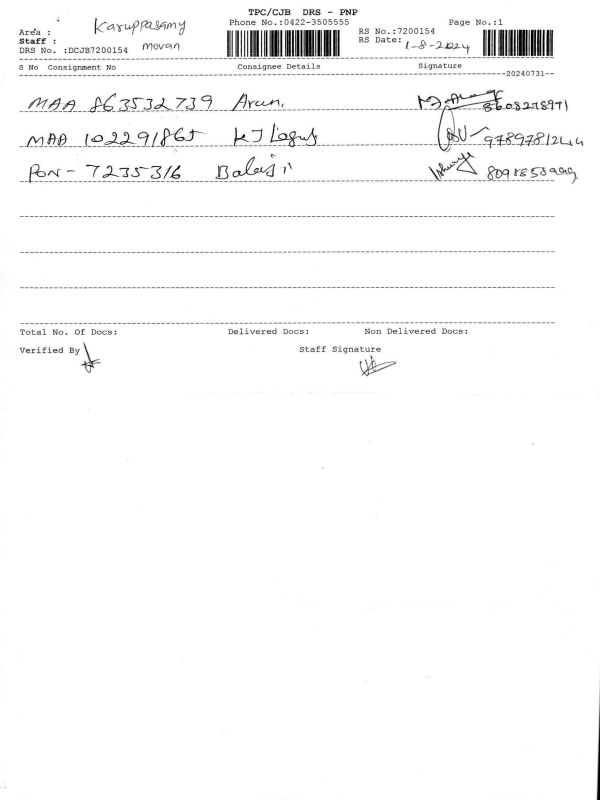 TPC/CJB DRS - PNP
Area : Karuppasamy Phone No.:0422-3505555 RS No.:7200154 Page No.:1
Staff : RS Date: 1-8-2024
DRS No. :DCJB7200154 movan
S No Consignment No Consignee Details Signature
20240731
MAA 863532739 Arun. 8608278971
MAA 102291865 KJ
PON - 7235316 Balaji
Total No. Of Docs: Delivered Docs: Non Delivered Docs:
Verified By Staff Signature